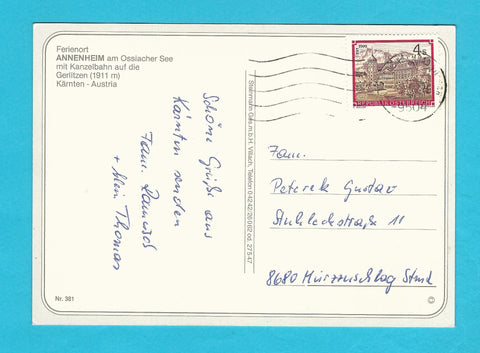 Ferienort
ANNENHEIM am Ossiacher See
mit Kanzelbahn auf die
Gerlitzen (1911 m)
Kärnten - Austria
Schöne Grüße aus
Kärnten senden
Fam.
+ Thomas
Nr. 381
Steinmann Ges.m.b.H. Villach, Telefon 04242/26962 od. 27547
4 S
REPUBLIK ÖSTERREICH
9504
Fam.
Peterek Gustav
11
8680 Mürzzuschlag Stmk